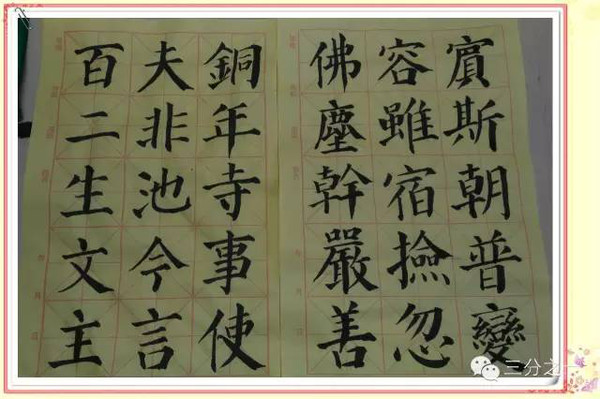 實斯朝普變
容雖宿撿忽
佛塵幹嚴善
銅年寺事使
夫非池今言
百二生文主
三分之一